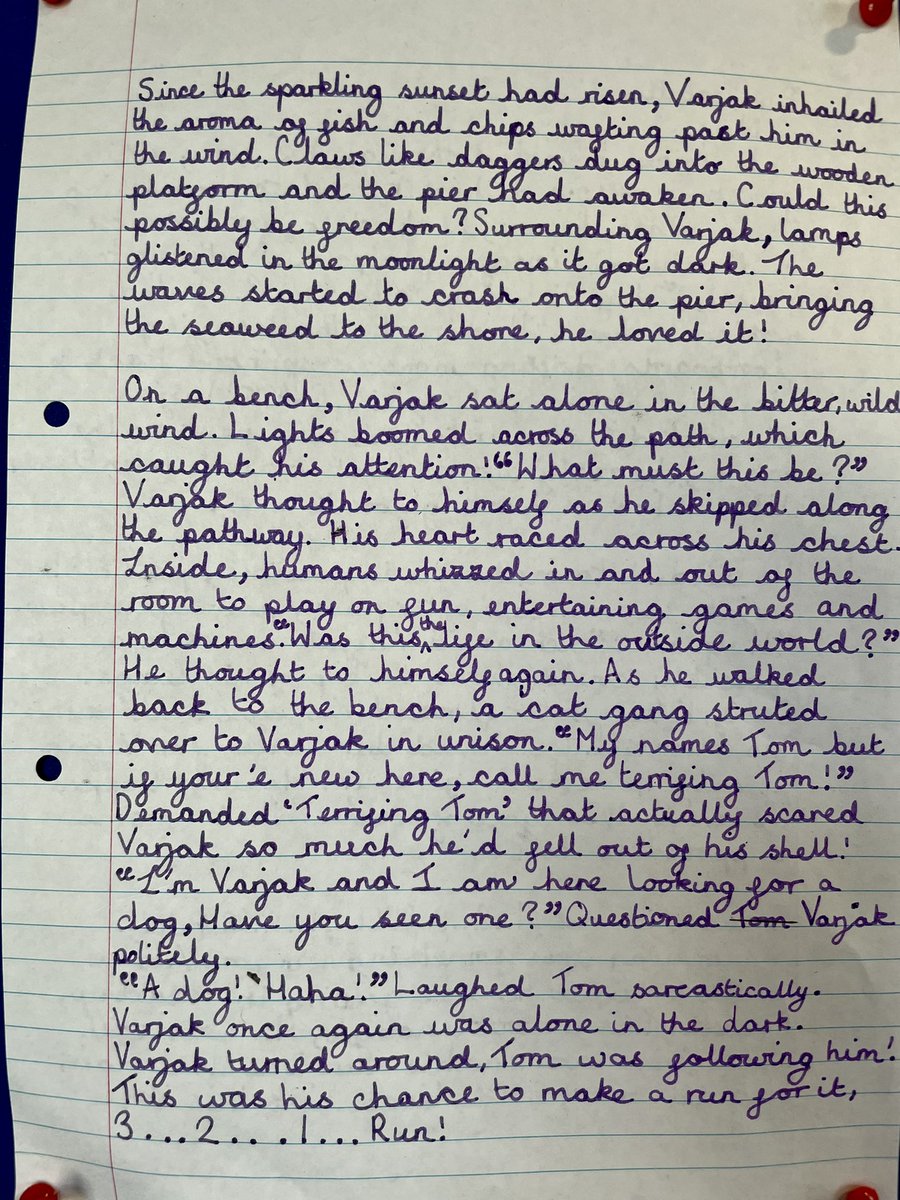 Since the sparkling sunset had risen, Varjak inhailed
the aroma of fish and chips wafting past him in
the wind. Claws like daggers dug into the wooden
platform and the pier had awaken. Could this
possibly be freedom? Surrounding Varjak, lamps
glistened in the moonlight as it got dark. The
waves started to crash onto the pier, bringing
the seaweed to the shore, he loved it!
On a bench, Varjak sat alone in the bitter, wild
wind. Lights boomed across the path, which
caught his attention! “What must this be?”
Varjak thought to himself as he skipped along
the pathway. His heart raced across his chest.
Inside, humans whizzed in and out of the
room to play on fun, entertaining games and
machines. “Was this the life in the outside world?”
He thought to himself again. As he walked
back to the bench, a cat gang struted
over to Varjak in unison. “My names Tom but
if your'e new here, call me terrifing Tom!”
Demanded ‘Terrifing Tom’ that actually scared
Varjak so much he'd fell out of his shell!
“I'm Varjak and I am here looking for a
dog, Have you seen one?” Questioned Tom Varjak
politely.
“A dog! Haha!” Laughed Tom sarcastically.
Varjak once again was alone in the dark.
Varjak turned around, Tom was following him!
This was his chance to make a run for it,
3...2....1... Run!